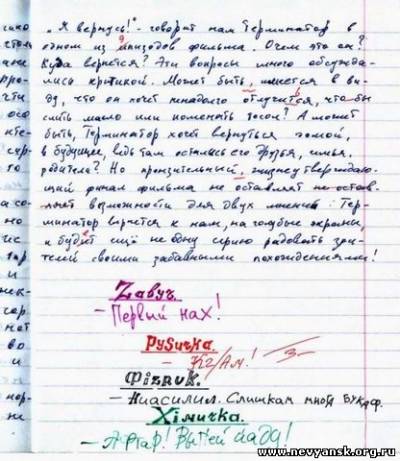 „Я вернусь!" - говорит нам Терминатор в
одном из эпизодов фильма. О чем это он?
Куда вернется? Эти вопросы много обсужда-
лись критикой. Может быть, имеется в ви-
ду, что он хочет ненадолго отлучится, что-бы
слить масло или поменять тосол? А может
быть, Терминатор хочет вернуться домой,
в будущее, ведь там остались его друзья, семья,
родители? Но пронзительный, жизнеутверждаю-
щий финал фильма не оставляет не остав-
ляет возможности для двух мнений: Тер-
минатор вернется к нам, на голубые экраны,
и будет ещё не одну серию радовать зри-
телей своими забавными похождениями!
Zавуч.
- Первый нах!
РуSичка.
- КГ/Ам! 3-
Фizрuk.
- Ниасилил. Слишкам многа букаф.
Хiмичка.
- Афтар! Выпей йаду!
www.nevyansk.org.ru